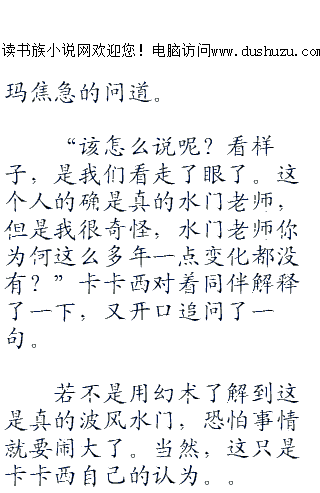 读书族小说网欢迎您！电脑访问www.dushuzu.com
玛焦急的问道。
“该怎么说呢？看样
子，是我们看走了眼了。这
个人的确是真的水门老师，
但是我很奇怪，水门老师你
为何这么多年一点变化都没
有？”卡卡西对着同伴解释
了一下，又开口追问了一
句。
若不是用幻术了解到这
是真的波风水门，恐怕事情
就要闹大了。当然，这只是
卡卡西自己的认为。。